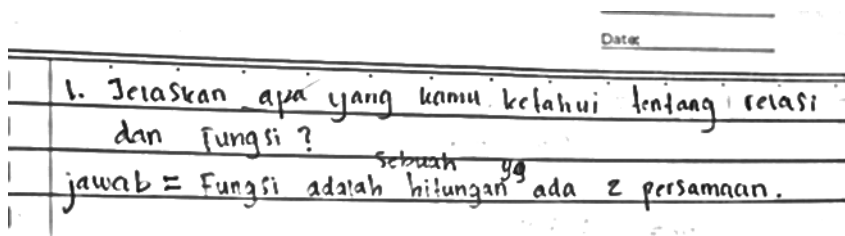 Date:
1. Jelaskan apa yang kamu ketahui tentang relasi
dan Fungsi?
jawab = Fungsi adalah sebuah hitungan yg ada 2 persamaan.